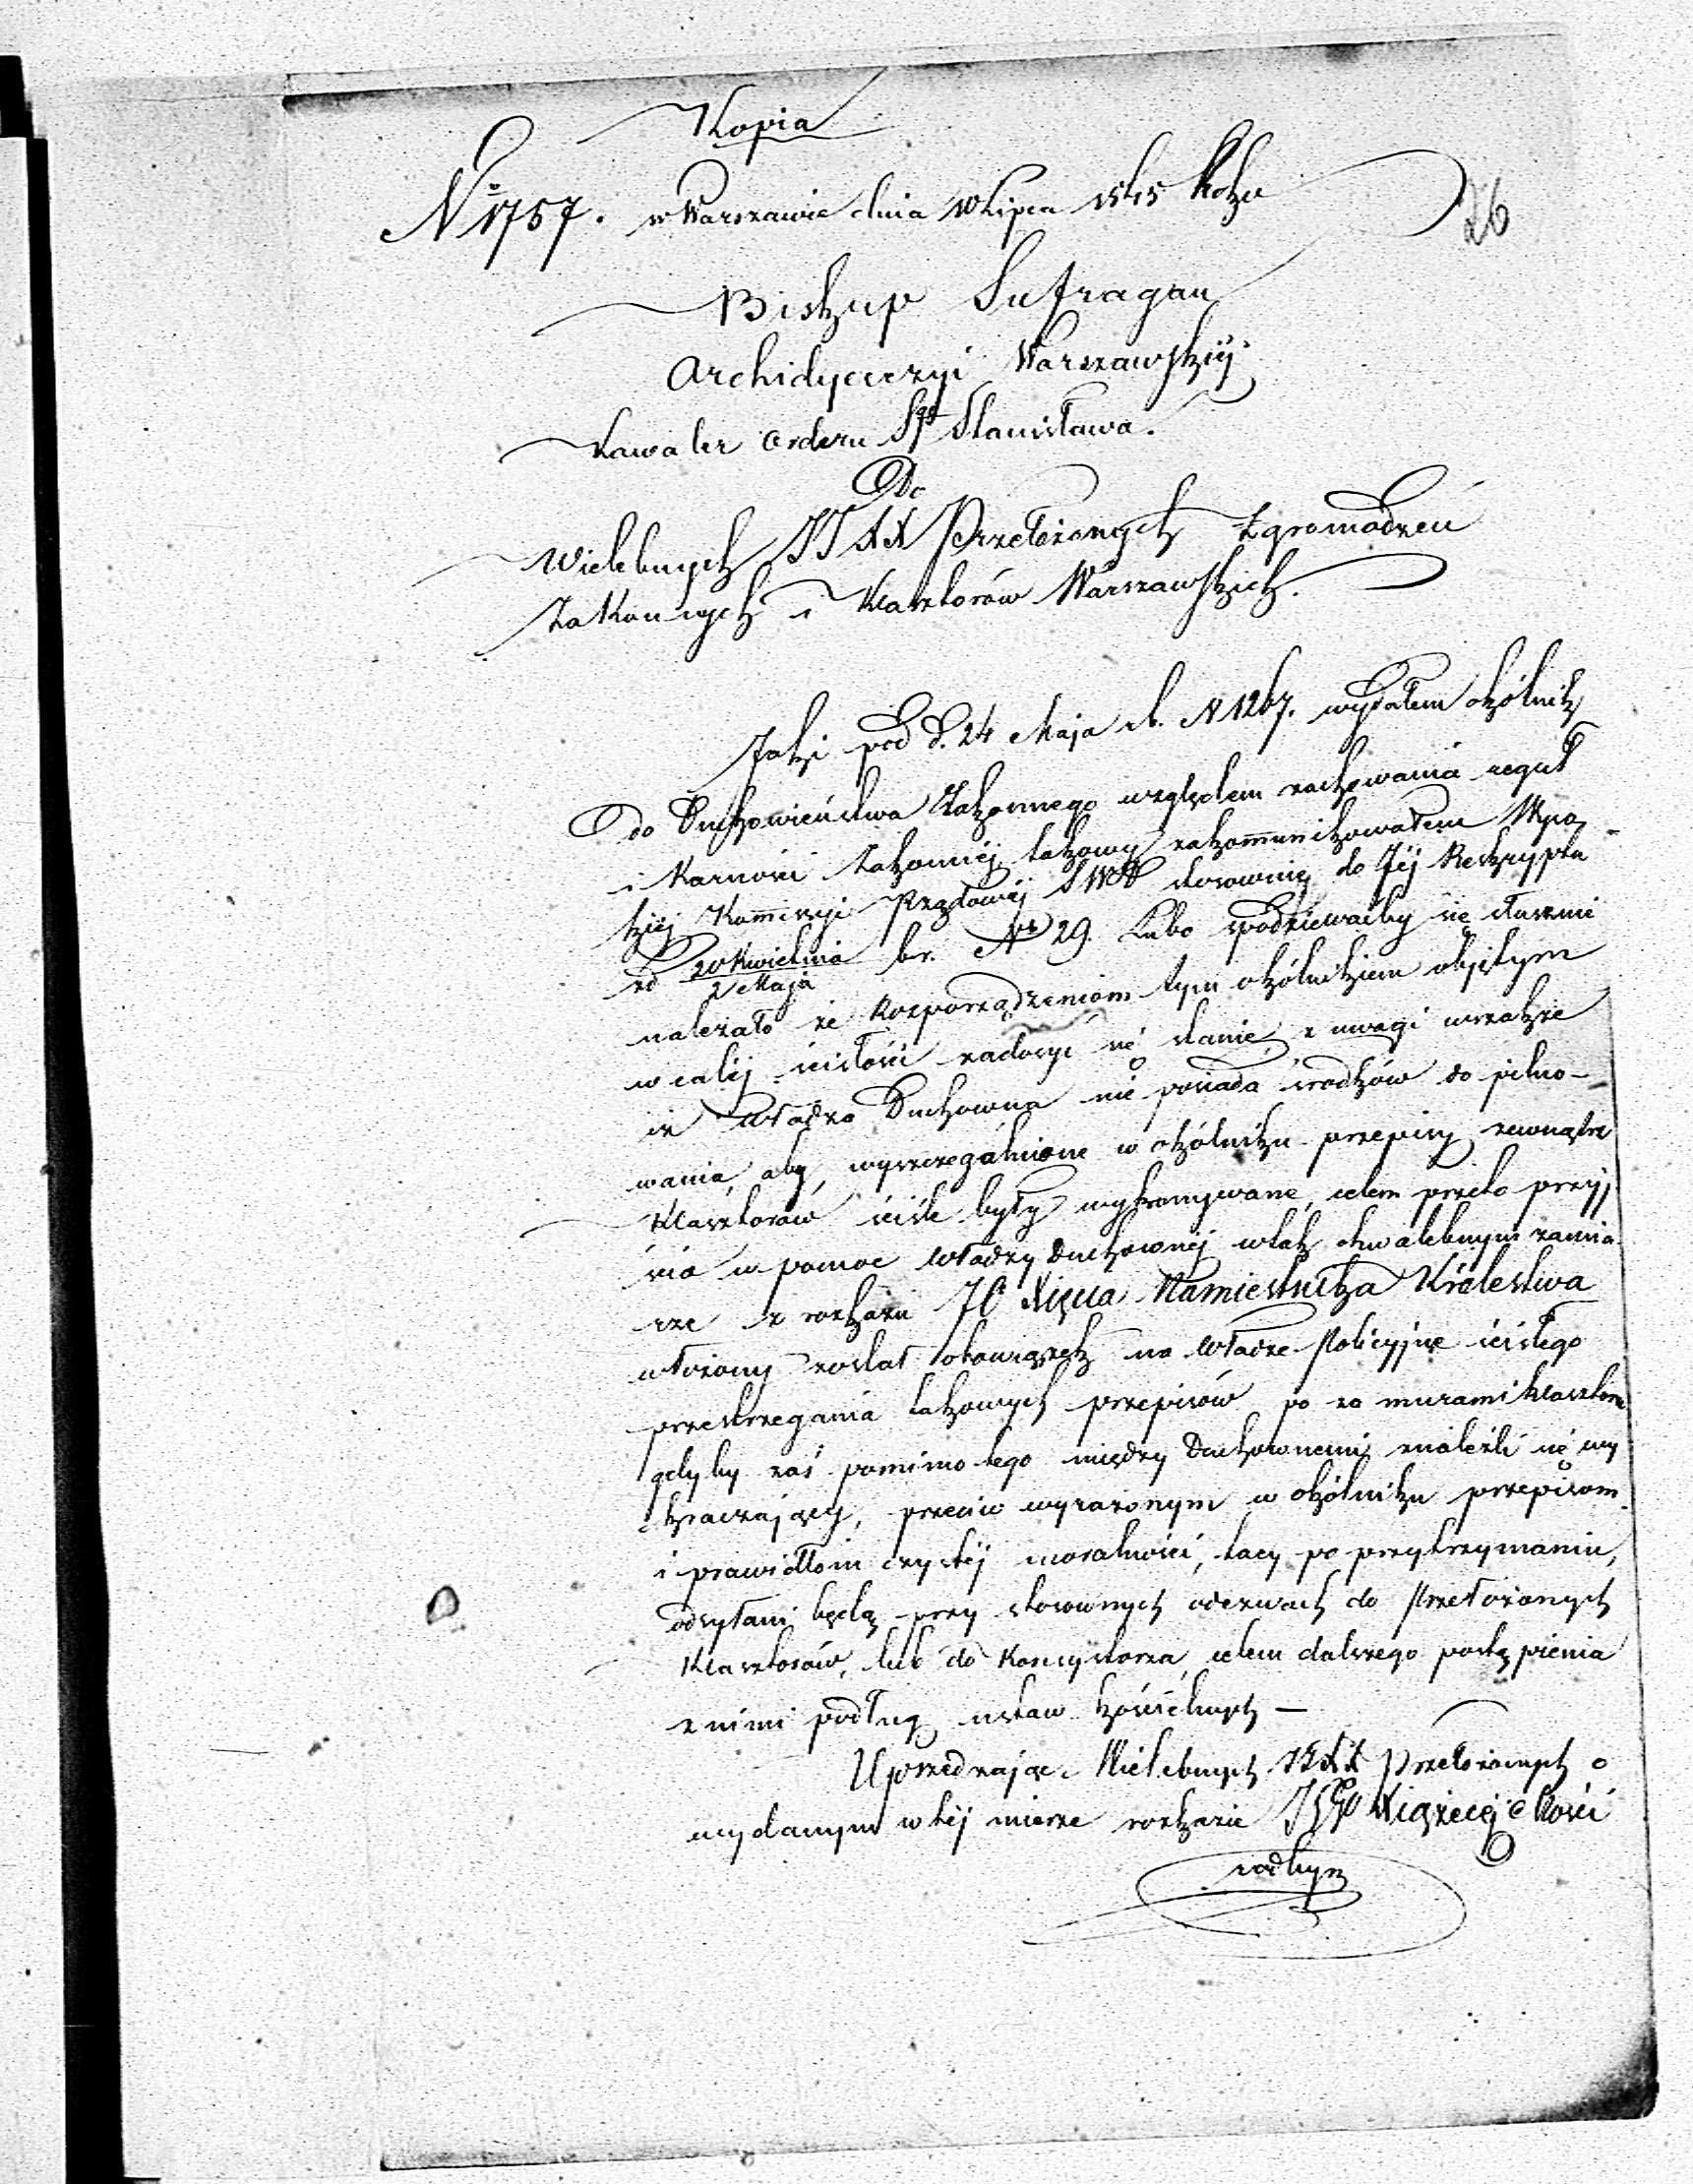 Kopia
N 1757. w Warszawie dnia 10 Lipca 1845 Roku
26
Biskup Sufragan
Archidyecezyi Warszawskiéj
Kawaler Orderu Sgo Stanisława.
Do
Wielebnych JJ XX Przełożonych Zgromadzeń
Zakonnych i Klasztorów Warszawskich.
Jaki pod d. 24 Maja rb. N 1267. wydałem okólnik
do Duchowieństwa Zakonnego względem zachowania reguł
i Karności Zakonnéj, takowy zakommunikowałem
Kommissyi Rządowéj SW stosownie do Jéj Reskryptu
zd 20 Kwietnia / 2 Maja br. N 29. Lubo spodziewaćby się słusznie
należało że Rozporządzeniom tym okólnikiem objętym
w całéj ścisłości zadosyć się stanie, z uwagi wszakże
iż Władza Duchowna nie posiada środków do pilno-
wania, aby wyszczególnione w okólniku przepisy zewnątrz
Klasztorów ściśle były wykonywane, celem przeto przyj
ścia w pomoc Władzy Duchownéj w tak chwalebnym zamia
rze z rozkazu JO Xięcia Namiestnika Królestwa
włożony został obowiązek na Władze Policyjne ścisłego
przestrzegania takowych przepisów po za murami klasztoru
gdyby zaś pomimo tego między Duchownemi znaleźli się wy
kraczający, przeciw wyrażonym w okólniku przepisom
i prawidłom czystéj moralności, tacy po przytrzymaniu,
odsyłani będą przy stosownych odezwach do Przełożonych
Klasztorów, lub do Konsystorza, celem dalszego postąpienia
z nimi podług ustaw kościelnych —
Uprzedzając Wielebnych XX Przełożonych o
wydanym w téj mierze rozkazie JO Xiążecéj Mości